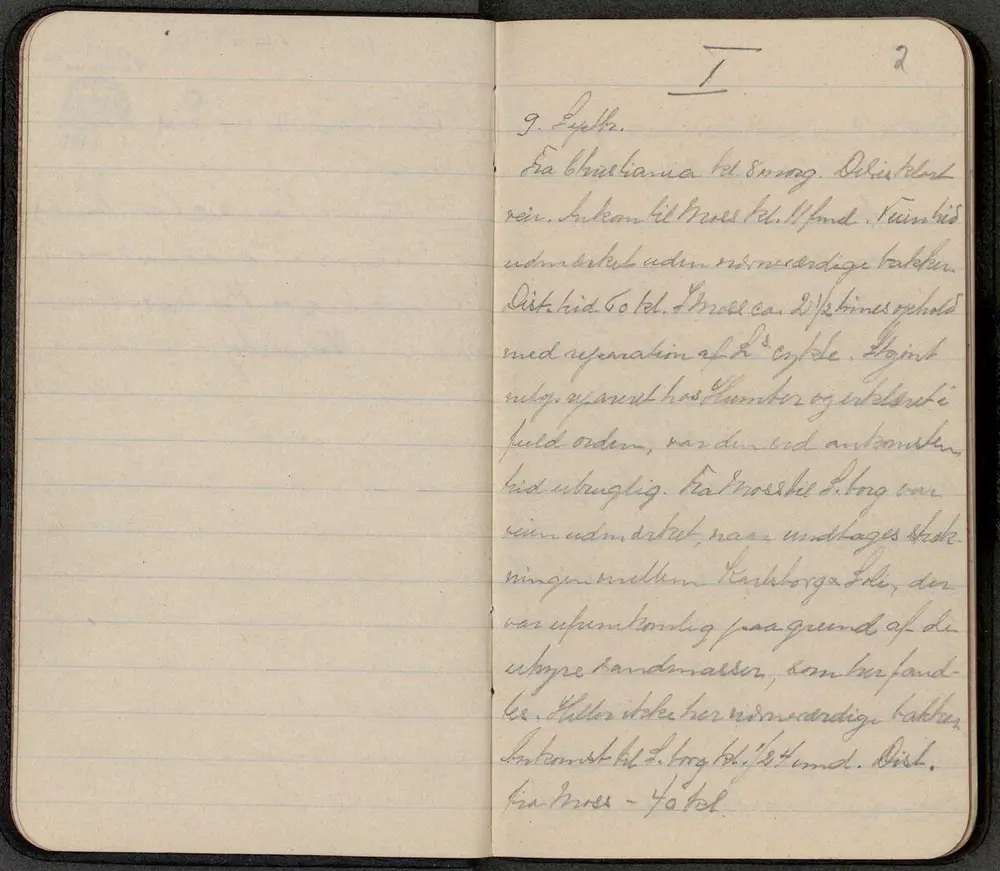 I
2
9. Septbr.
Fra Christiania kl 8 morg. Deilig klart
veir. Ankom til Moss kl. 11 fmd. Veien hid
udmærket uden nævneværdige bakker.
Dist. hid 60 kl. I Moss ca. 2 1/2 times ophold
med reparation af L's cykle. Skjønt
nylig repareret hos Humber og erklæret i
fuld orden, var den ved ankomsten
hid ubruglig. Fra Moss til S.borg var
veien udmærket, naar undtages stræk-
ningen mellem Karlsborg & Soli, der
var ufremkomlig paa grund af de
uhyre sandmasser, som her fand-
tes. Heller ikke her nævneværdige bakker.
Ankomst til S.borg kl. 1/2 4 emd. Dist.
fra Moss - 40 kl.